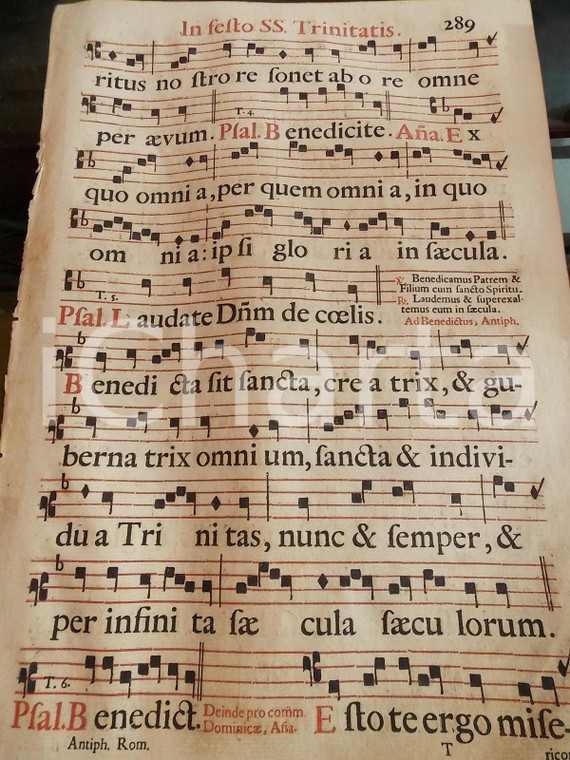 In feſto SS. Trinitatis. 289
ritus no ſtro re ſonet ab o re omne
T. 4.
per ævum. Pſal. B enedicite. Aña. E x
quo omni a, per quem omni a, in quo
om ni a: ip ſi glo ri a in ſæcula.
T. 5.
Pſal. L audate Dñm de cœlis.
℣. Benedicamus Patrem &
Filium cum ſancto Spiritu.
℟. Laudemus & ſuperexal-
temus eum in ſæcula.
Ad Benedictus, Antiph.
B enedi cta ſit ſancta, cre a trix, & gu-
berna trix omni um, ſancta & indivi-
du a Tri ni tas, nunc & ſemper, &
per infini ta ſæ cula ſæcu lorum.
T. 6.
Pſal. B enedict. Deinde pro com̃. Dominicæ, Aña. E ſto te ergo miſe-
Antiph. Rom. T ricor
iCharta